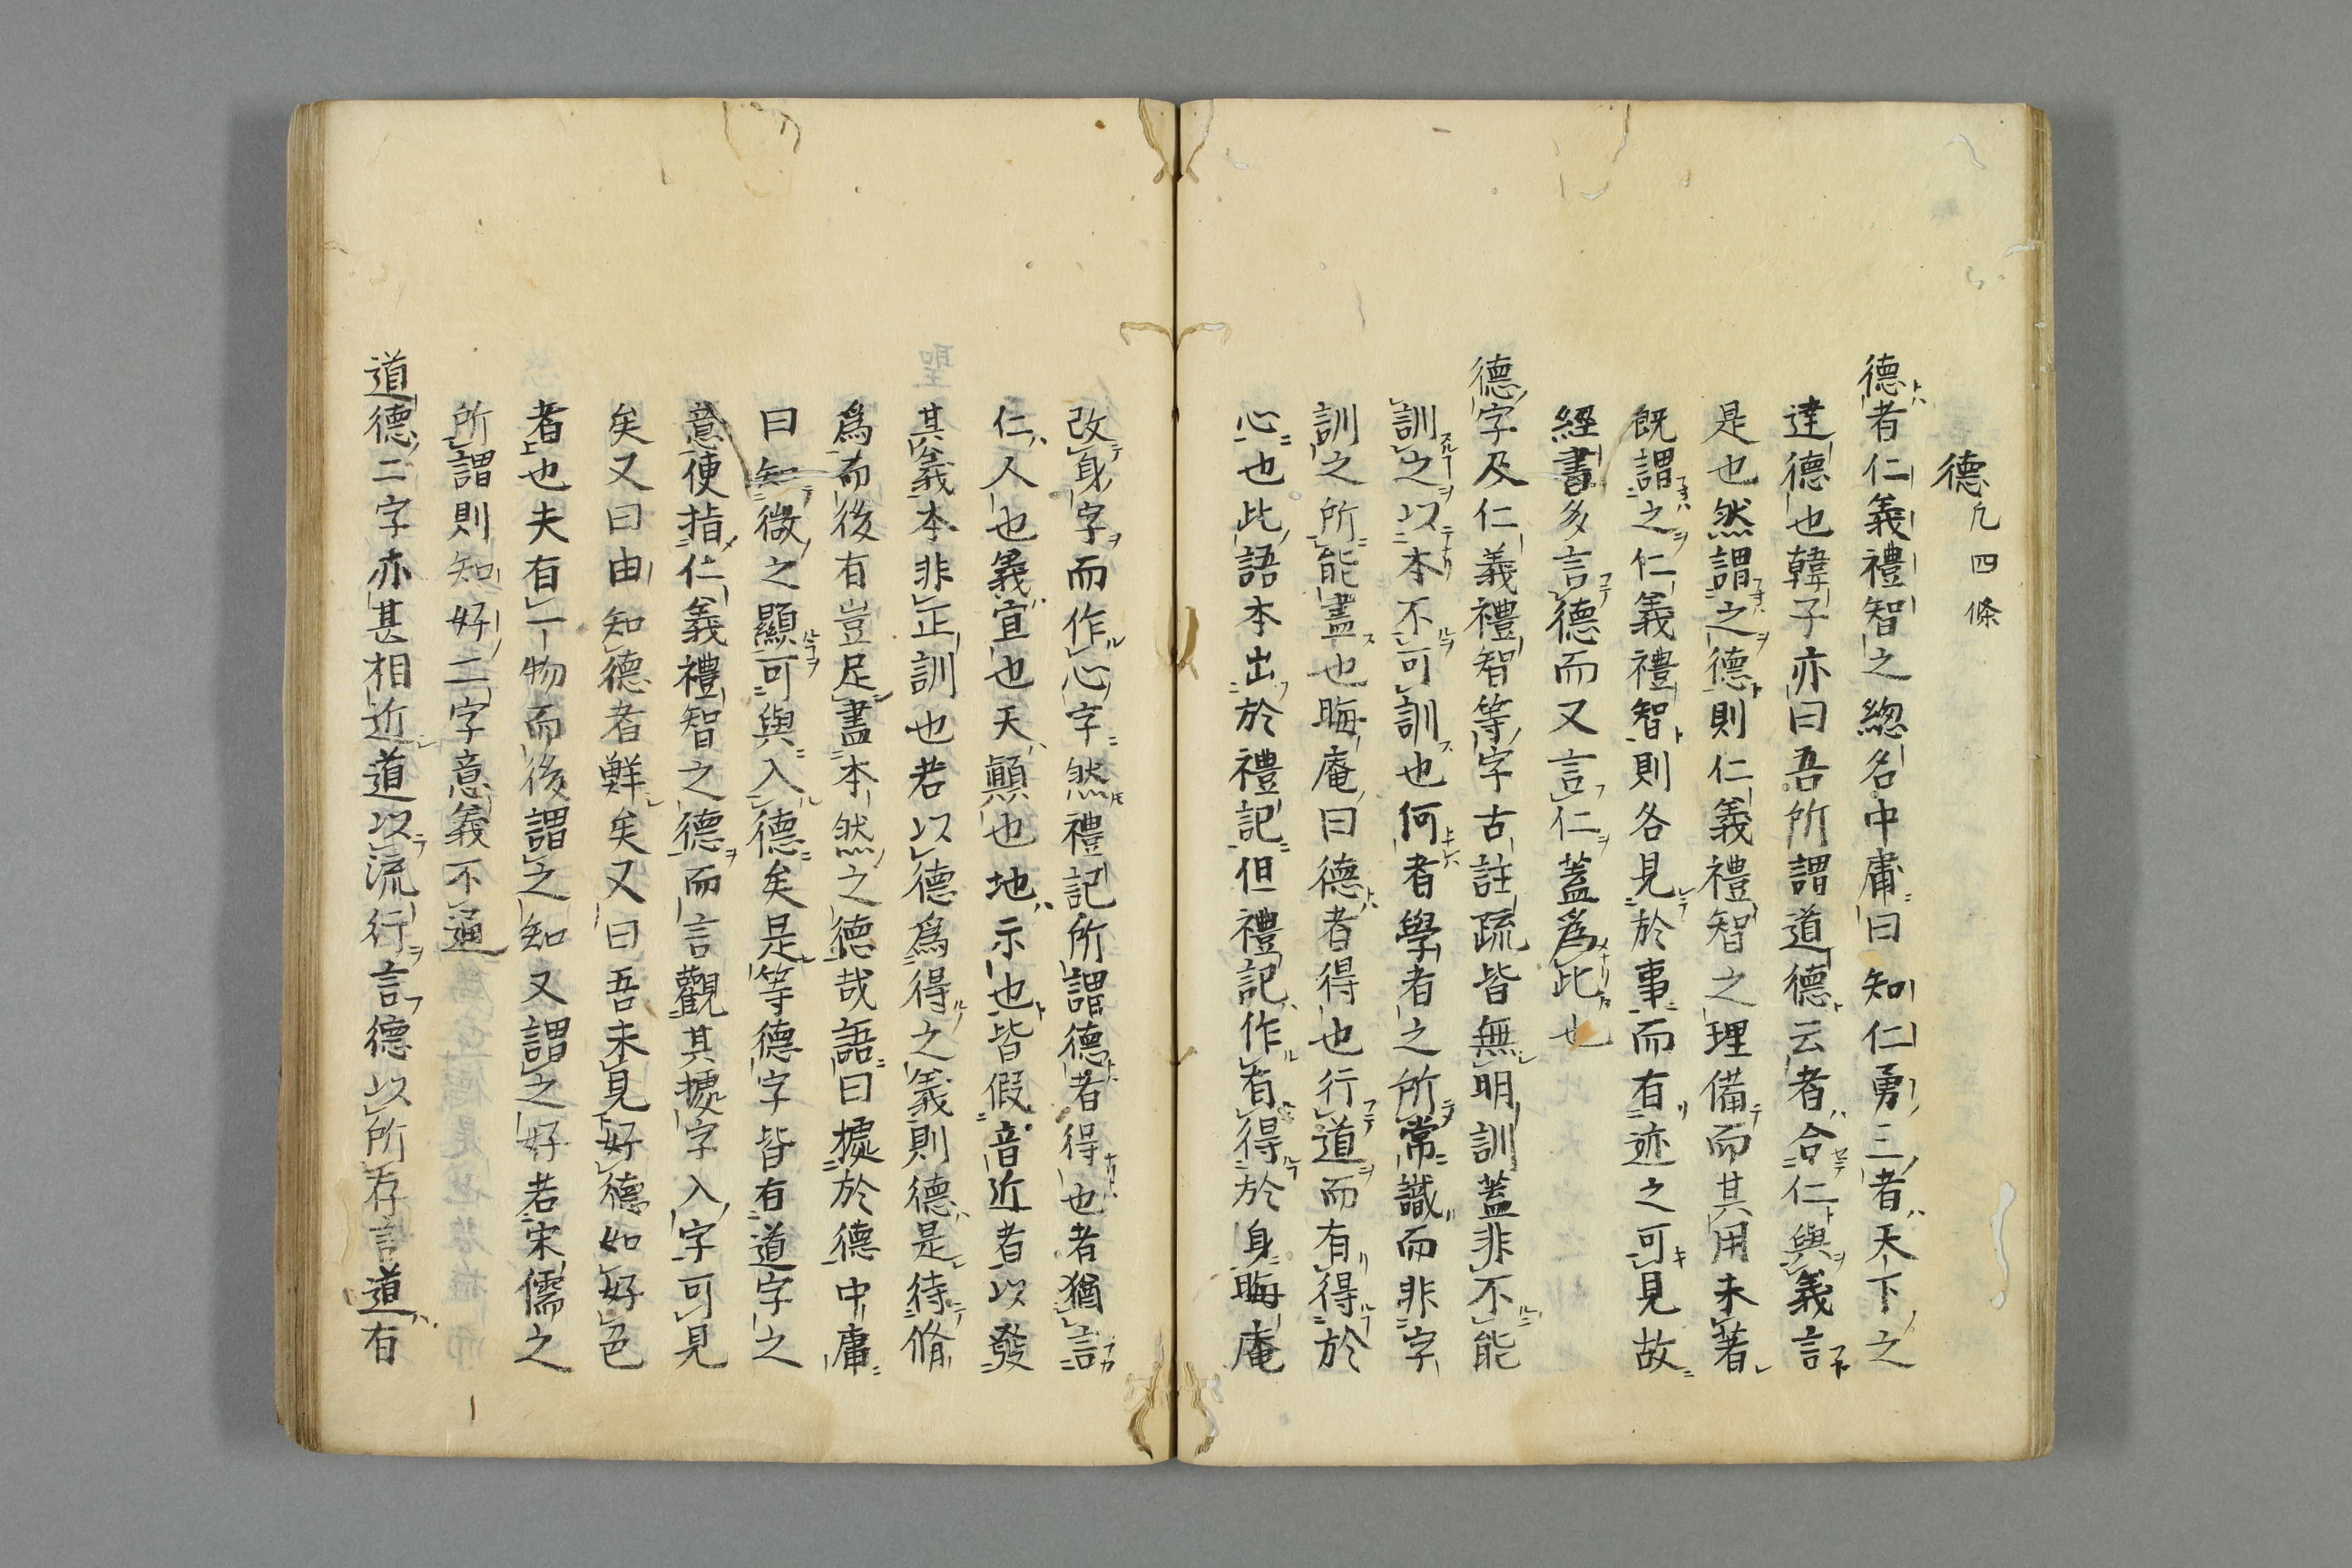 德 凡四條
德者仁義禮智之緫名中庸曰知仁勇三者天下之
達德也韓子亦曰吾所謂道德云者合仁與義言
是也然謂之德則仁義禮智之理備而其用未著
既謂之仁義禮智則各見於事而有迹之可見故
經書多言德而又言仁蓋爲此也
德字及仁義禮智等字古註疏皆無明訓蓋非不能
訓之以本不可訓也何者學者之所常識而非字
訓之所能盡也晦庵曰德者得也行道而有得於
心也此語本出於禮記但禮記作有得於身晦庵
改身字而作心字然禮記所謂德者得也者猶言
仁人也義宜也天顚也地示也皆假音近者以發
其義本非正訓也若以德爲得之義則德是待脩
爲而後有豈足盡本然之德哉語曰據於德中庸
曰知微之顯可與入德矣是等德字皆有道字之
意便指仁義禮智之德而言觀其據字入字可見
矣又曰由知德者鮮矣又曰吾未見好德如好色
者也夫有一物而後謂之知又謂之好若宋儒之
所謂則知好二字意義不通
道德二字亦甚相近道以流行言德以所存言道有